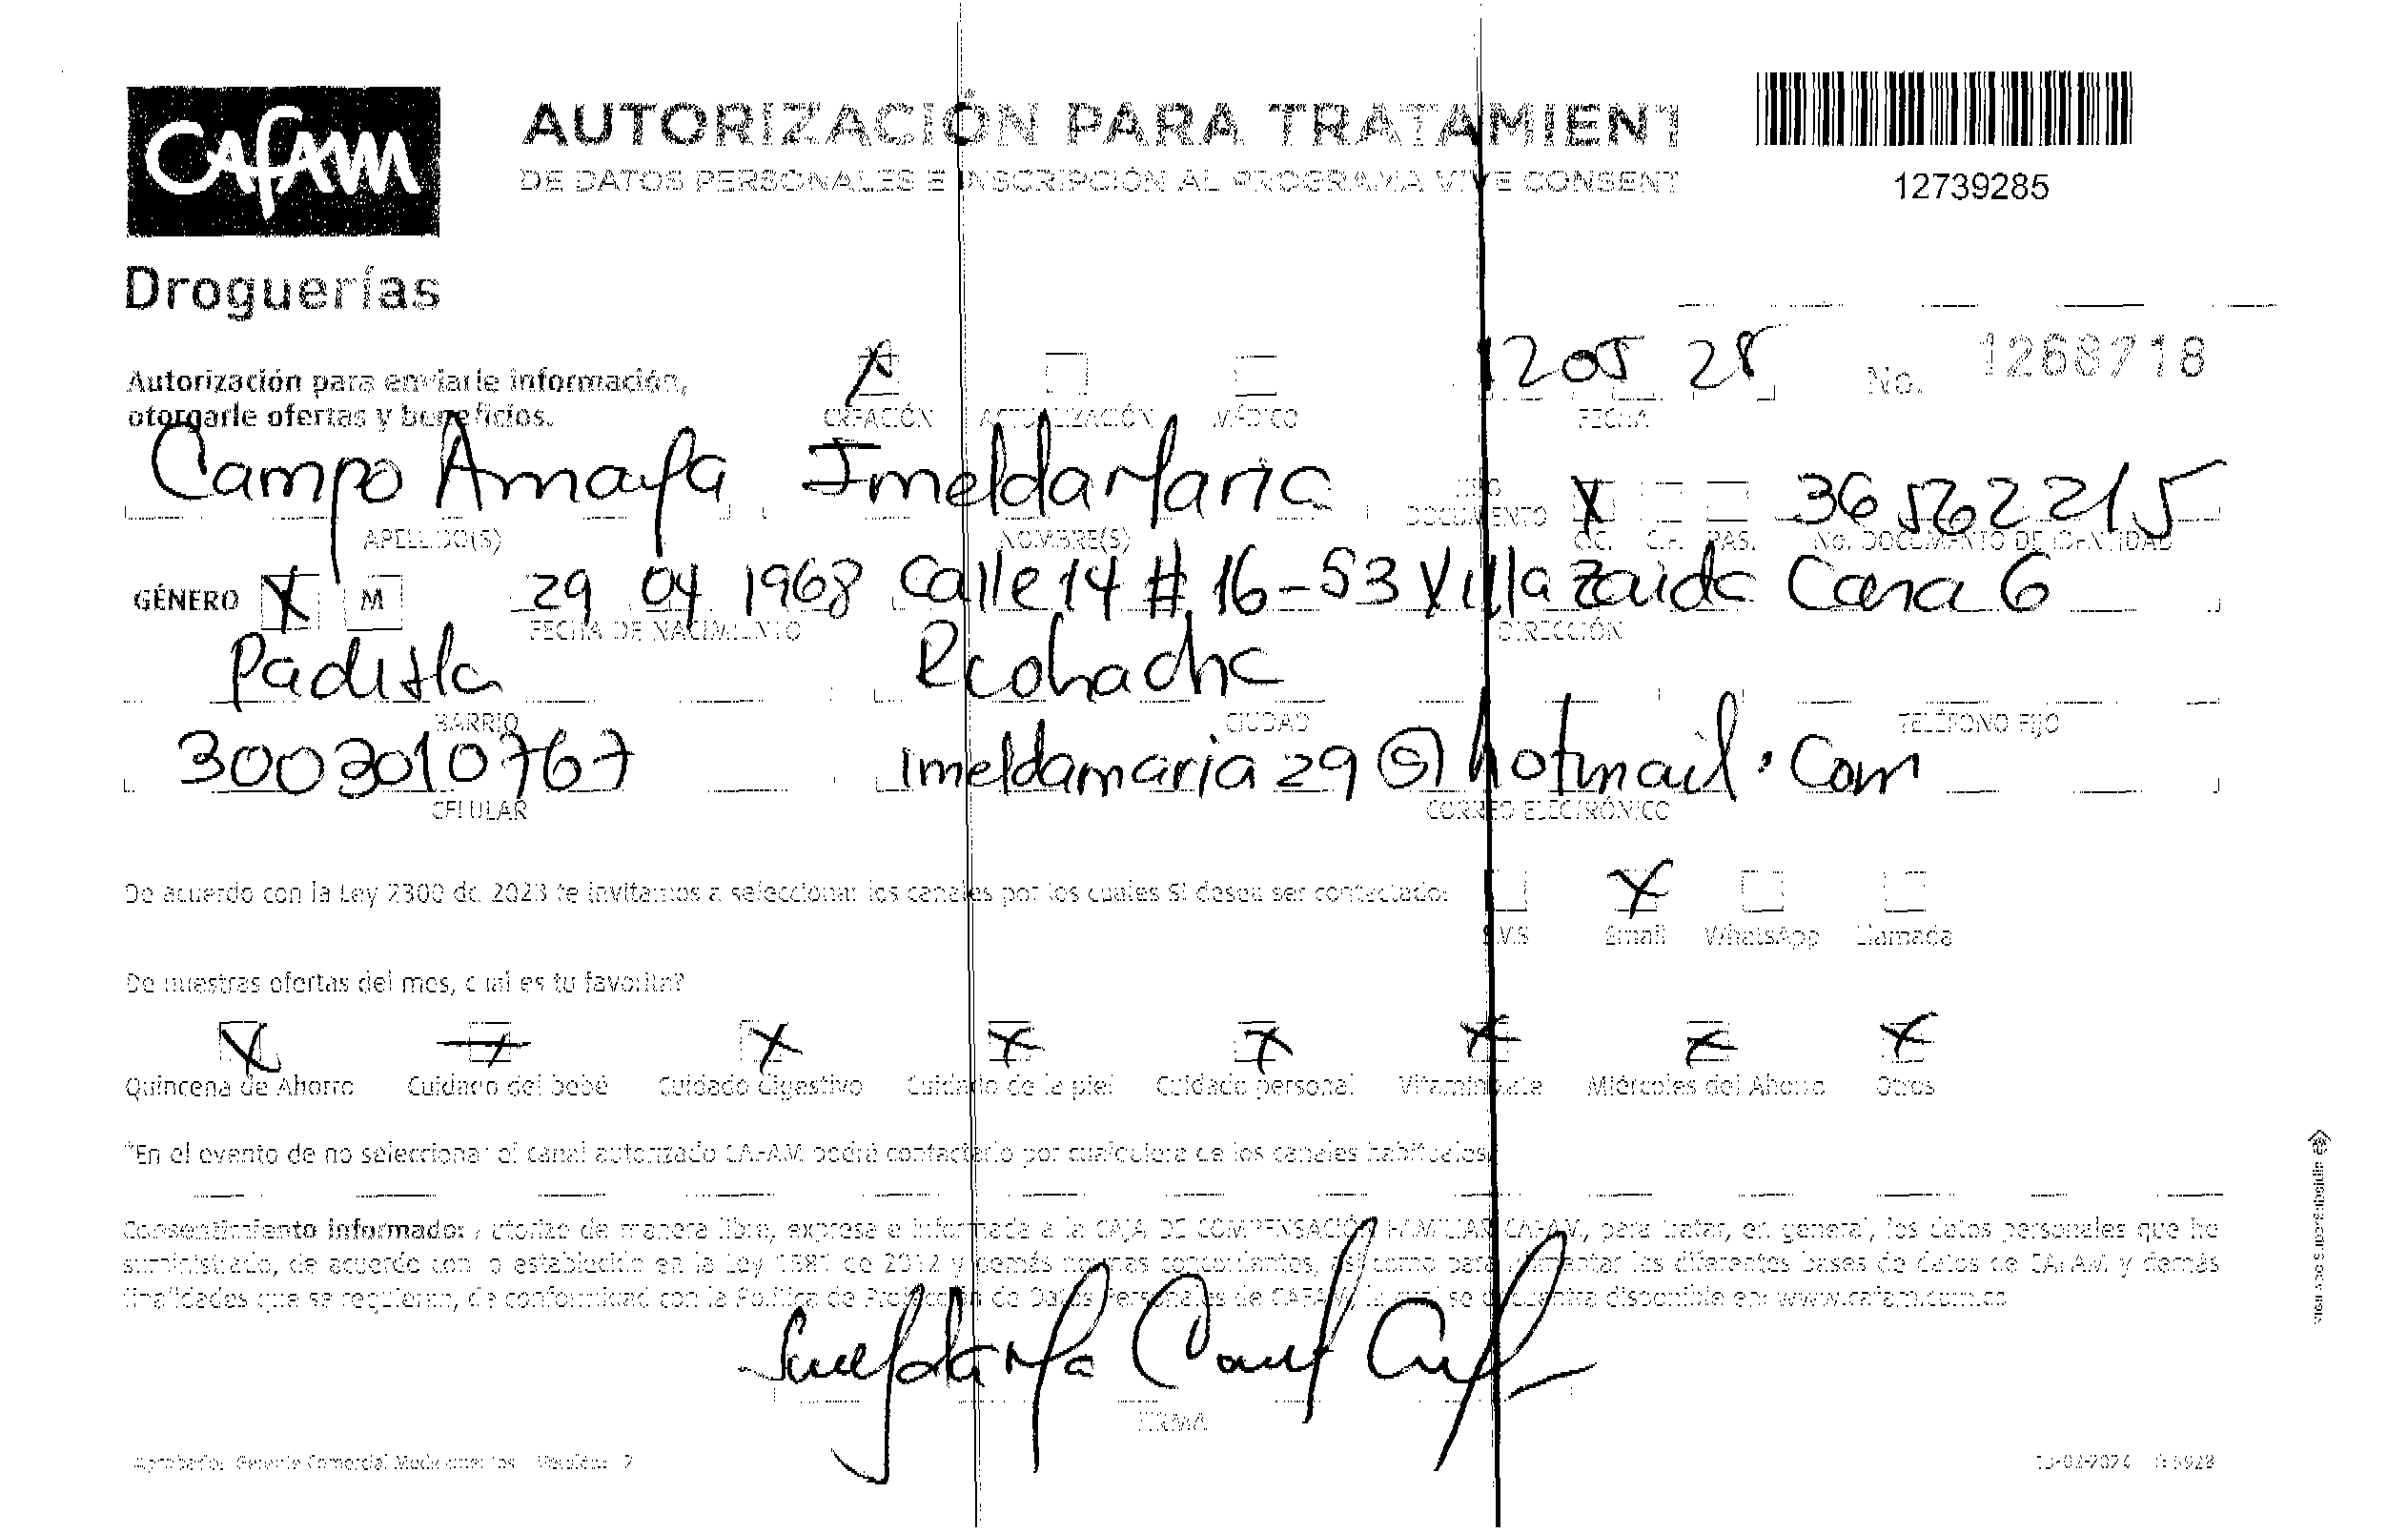 CAFAM
Droguerías
AUTORIZACIÓN PARA TRATAMIENT
DE DATOS PERSONALES E INSCRIPCIÓN AL PROGRAMA VIVE CONSENT
12739285
Autorización para enviarle información,
otorgarle ofertas y beneficios.
X CREACIÓN ACTUALIZACIÓN MÉDICO
1205 28 FECHA
No. 1268718
Campo Amaya Imelda Maria
APELLIDO(S) NOMBRE(S)
TIPO DOCUMENTO X C.C. C.E. PAS. 36562215
No. DOCUMENTO DE IDENTIDAD
GÉNERO X M 29 04 1968 Calle 14 # 16-53 Villa Zaida Casa 6
FECHA DE NACIMIENTO DIRECCIÓN
Padilla Riohacha
BARRIO CIUDAD TELÉFONO FIJO
3003010767 Imeldamaria29@hotmail.Com
CELULAR CORREO ELECTRÓNICO
De acuerdo con la Ley 2300 de 2023 te invitamos a seleccionar los canales por los cuales SI desea ser contactado:
SMS X Email WhatsApp Llamada
De nuestras ofertas del mes, cual es tu favorita?
X X X X X X X X
Quincena de Ahorro Cuidado del bebé Cuidado digestivo Cuidado de la piel Cuidado personal Vitamínate Miércoles del Ahorro Otros
*En el evento de no seleccionar el canal autorizado CAFAM podrá contactarlo por cualquiera de los canales habituales.
Consentimiento informado: Autorizo de manera libre, expresa e informada a la CAJA DE COMPENSACIÓN FAMILIAR CAFAM, para tratar, en general, los datos personales que he
suministrado, de acuerdo con lo establecido en la Ley 1581 de 2012 y demás normas concordantes, así como para alimentar las diferentes bases de datos de CAFAM y demás
finalidades que se requieran, de conformidad con la Política de Protección de Datos Personales de CAFAM, la cual se encuentra disponible en: www.cafam.com.co
FIRMA
Aprobado: Gerente Comercial Medicamentos Versión: 2
VIGILADO SuperSubsidio